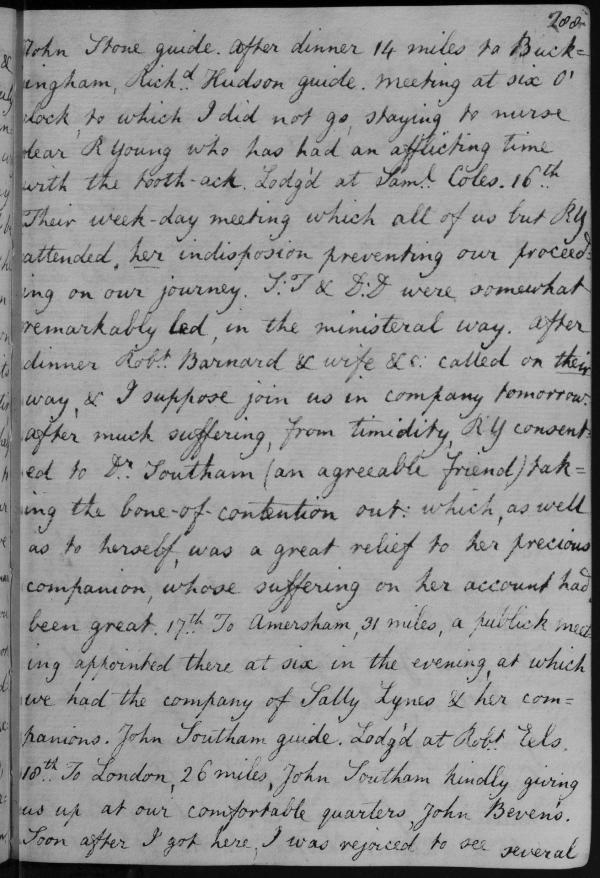 288
John Stone guide. After dinner 14 miles to Buck=
ingham, Richd. Hudson guide. Meeting at six O'
clock, to which I did not go, staying to nurse
dear R Young who has had an afflicting time
with the tooth-ack. Lodg'd at Saml. Coles. 16th.
Their week-day meeting which all of us but RY
attended, her indisposion preventing our proceed=
ing on our journey. S:T & D:D were somewhat
remarkably led, in the ministeral way. After
dinner Robt. Barnard & wife &c: called on their
way, & I suppose join us in company tomorrow.
After much suffering, from timidity, RY consent=
ed to Dr. Southam (an agreeable friend) tak=
ing the bone-of-contention out: which, as well
as to herself, was a great relief to her precious
companion, whose suffering on her account had
been great. 17th. To Amersham, 31 miles, a publick meet=
ing appointed there at six in the evening, at which
we had the company of Sally Lynes & her com=
panions. John Southam guide. Lodg'd at Robt. Eels.
18th. To London, 26 miles, John Southam kindly giving
us up at our comfortable quarters, John Beven's.
Soon after I got here, I was rejoiced to see several